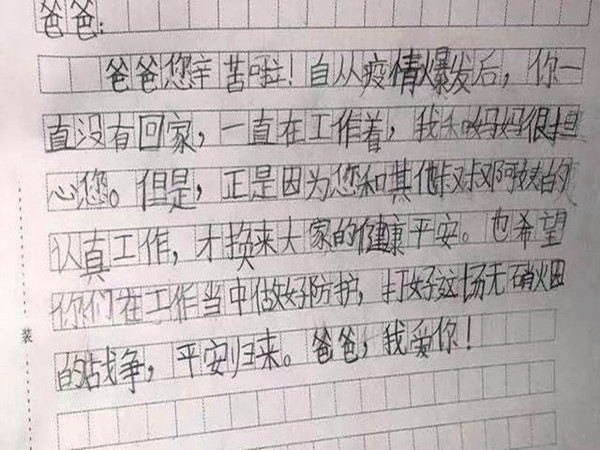 爸爸：
爸爸您辛苦啦！自从疫情爆发后，你一
直没有回家，一直在工作着，我和妈妈很担
心您。但是，正是因为您和其他叔叔阿姨的
认真工作，才换来大家的健康平安。也希望
你们在工作当中做好防护，打好这场无硝烟
的战争，平安归来。爸爸，我爱你！
装